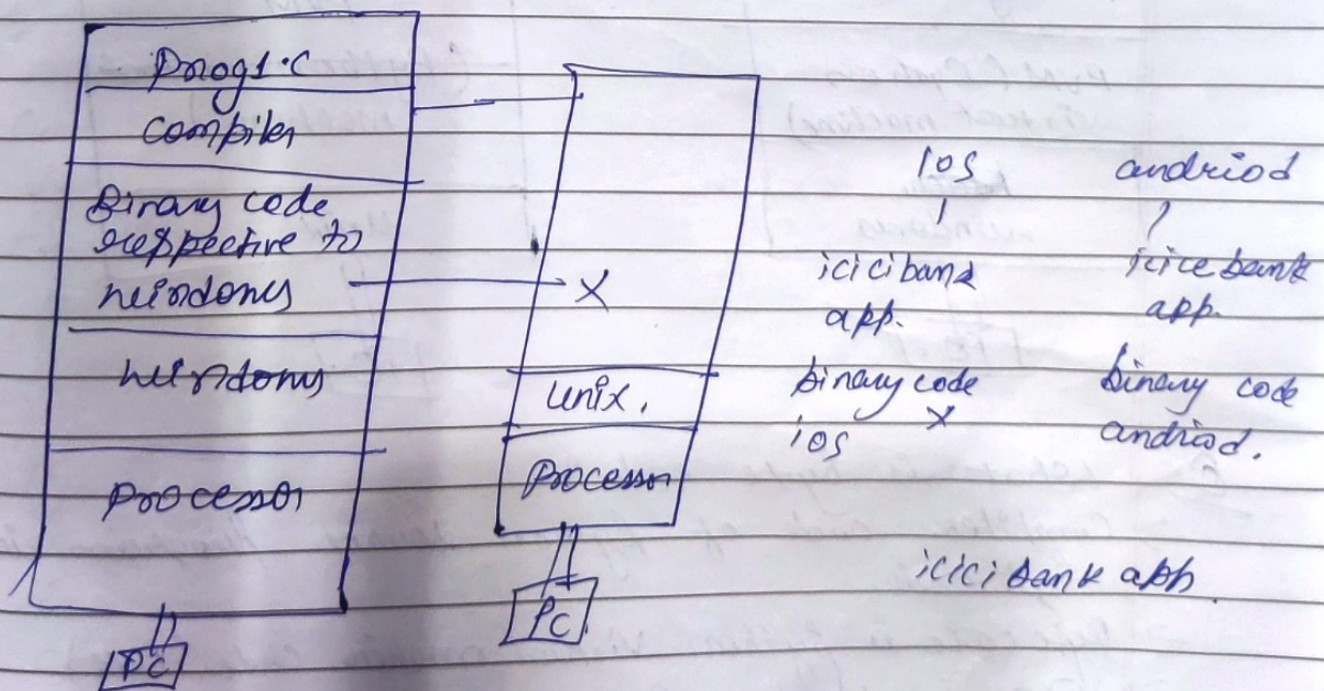 prog1.c
compiler
Binary code
respective to
windows
windows
processor
PC
unix.
processor
PC
X
ios
icicibank
app.
binary code
X
ios
andriod
icicebank
app.
binary code
andriod.
icicibank app.